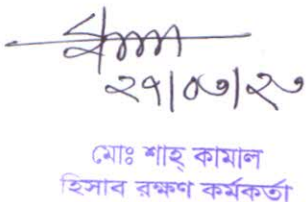 ২৭|০৬|২৩
মোঃ শাহ্ কামাল
হিসাব রক্ষণ কর্মকর্তা